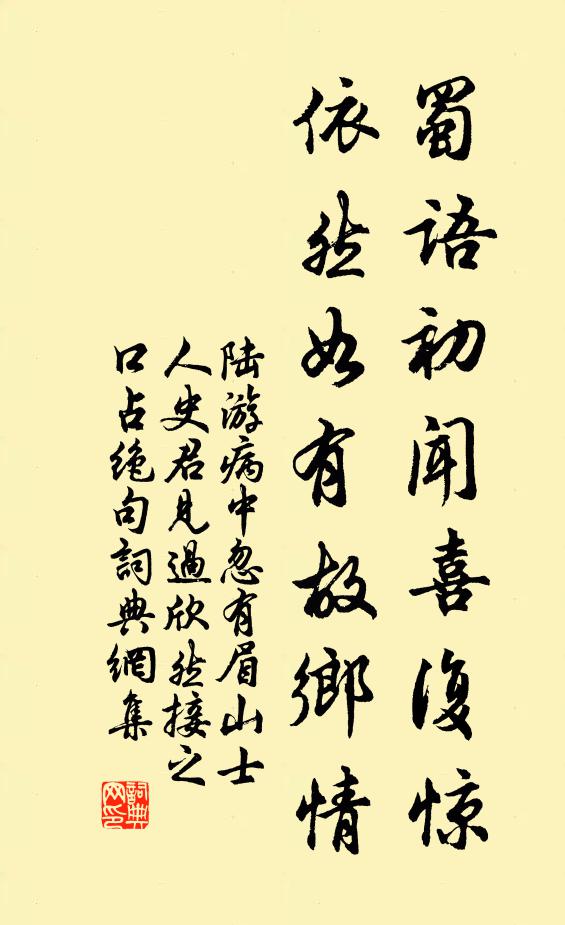 蜀语初闻喜復惊
依然如有故鄉情
陆游病中忽有眉山士
人史君見過欣然接之
口占绝句詞典網集
詞典网印